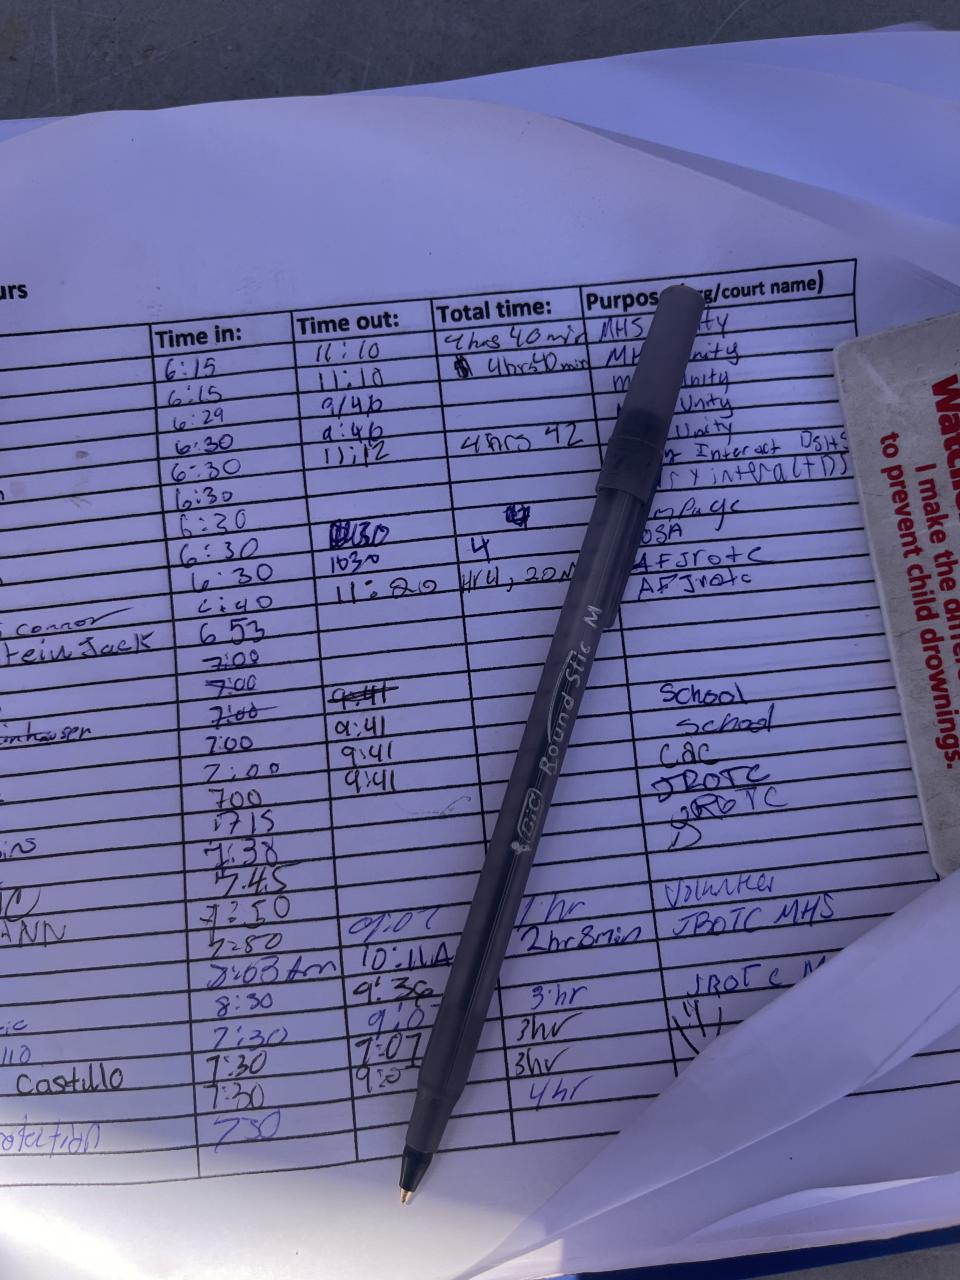 urs
Time in: Time out: Total time: Purpos rg/court name)
6:15 11:10 4hrs 40 min MHS ty
6:15 11:10 4hrs40min MH unity
6:29 9/46 m unity
6:30 9:46 Unity
6:30 11:12 4hrs 42 unity
6:30 Interact DSHS
6:30 interact DS
6:30 30 mpage
6:30 1030 4 OSA
6:40 11:20 Hr4, 20M AFJrotc
connor 6 53 AFJrotc
tein Jack 7:00
7:00
7:00 9:41 School
inhauser 7:00 9:41 School
7:00 9:41 cac
700 9:41 JROTC
715 JROTC
ins 7:38
7:45
7:50 Volunteer
ANN 7:50 9:07 1 hr JROTC MHS
8:03 Am 10:11A 2hr8min
8:30 9:36 JROTC M
ic 7:30 9:0 3 hr
110 7:30 7:07 3hr
Castillo 7:30 9:0 3hr
730 4hr
BIC Round Stic M
Watche
I make the differe
to prevent child drownings.